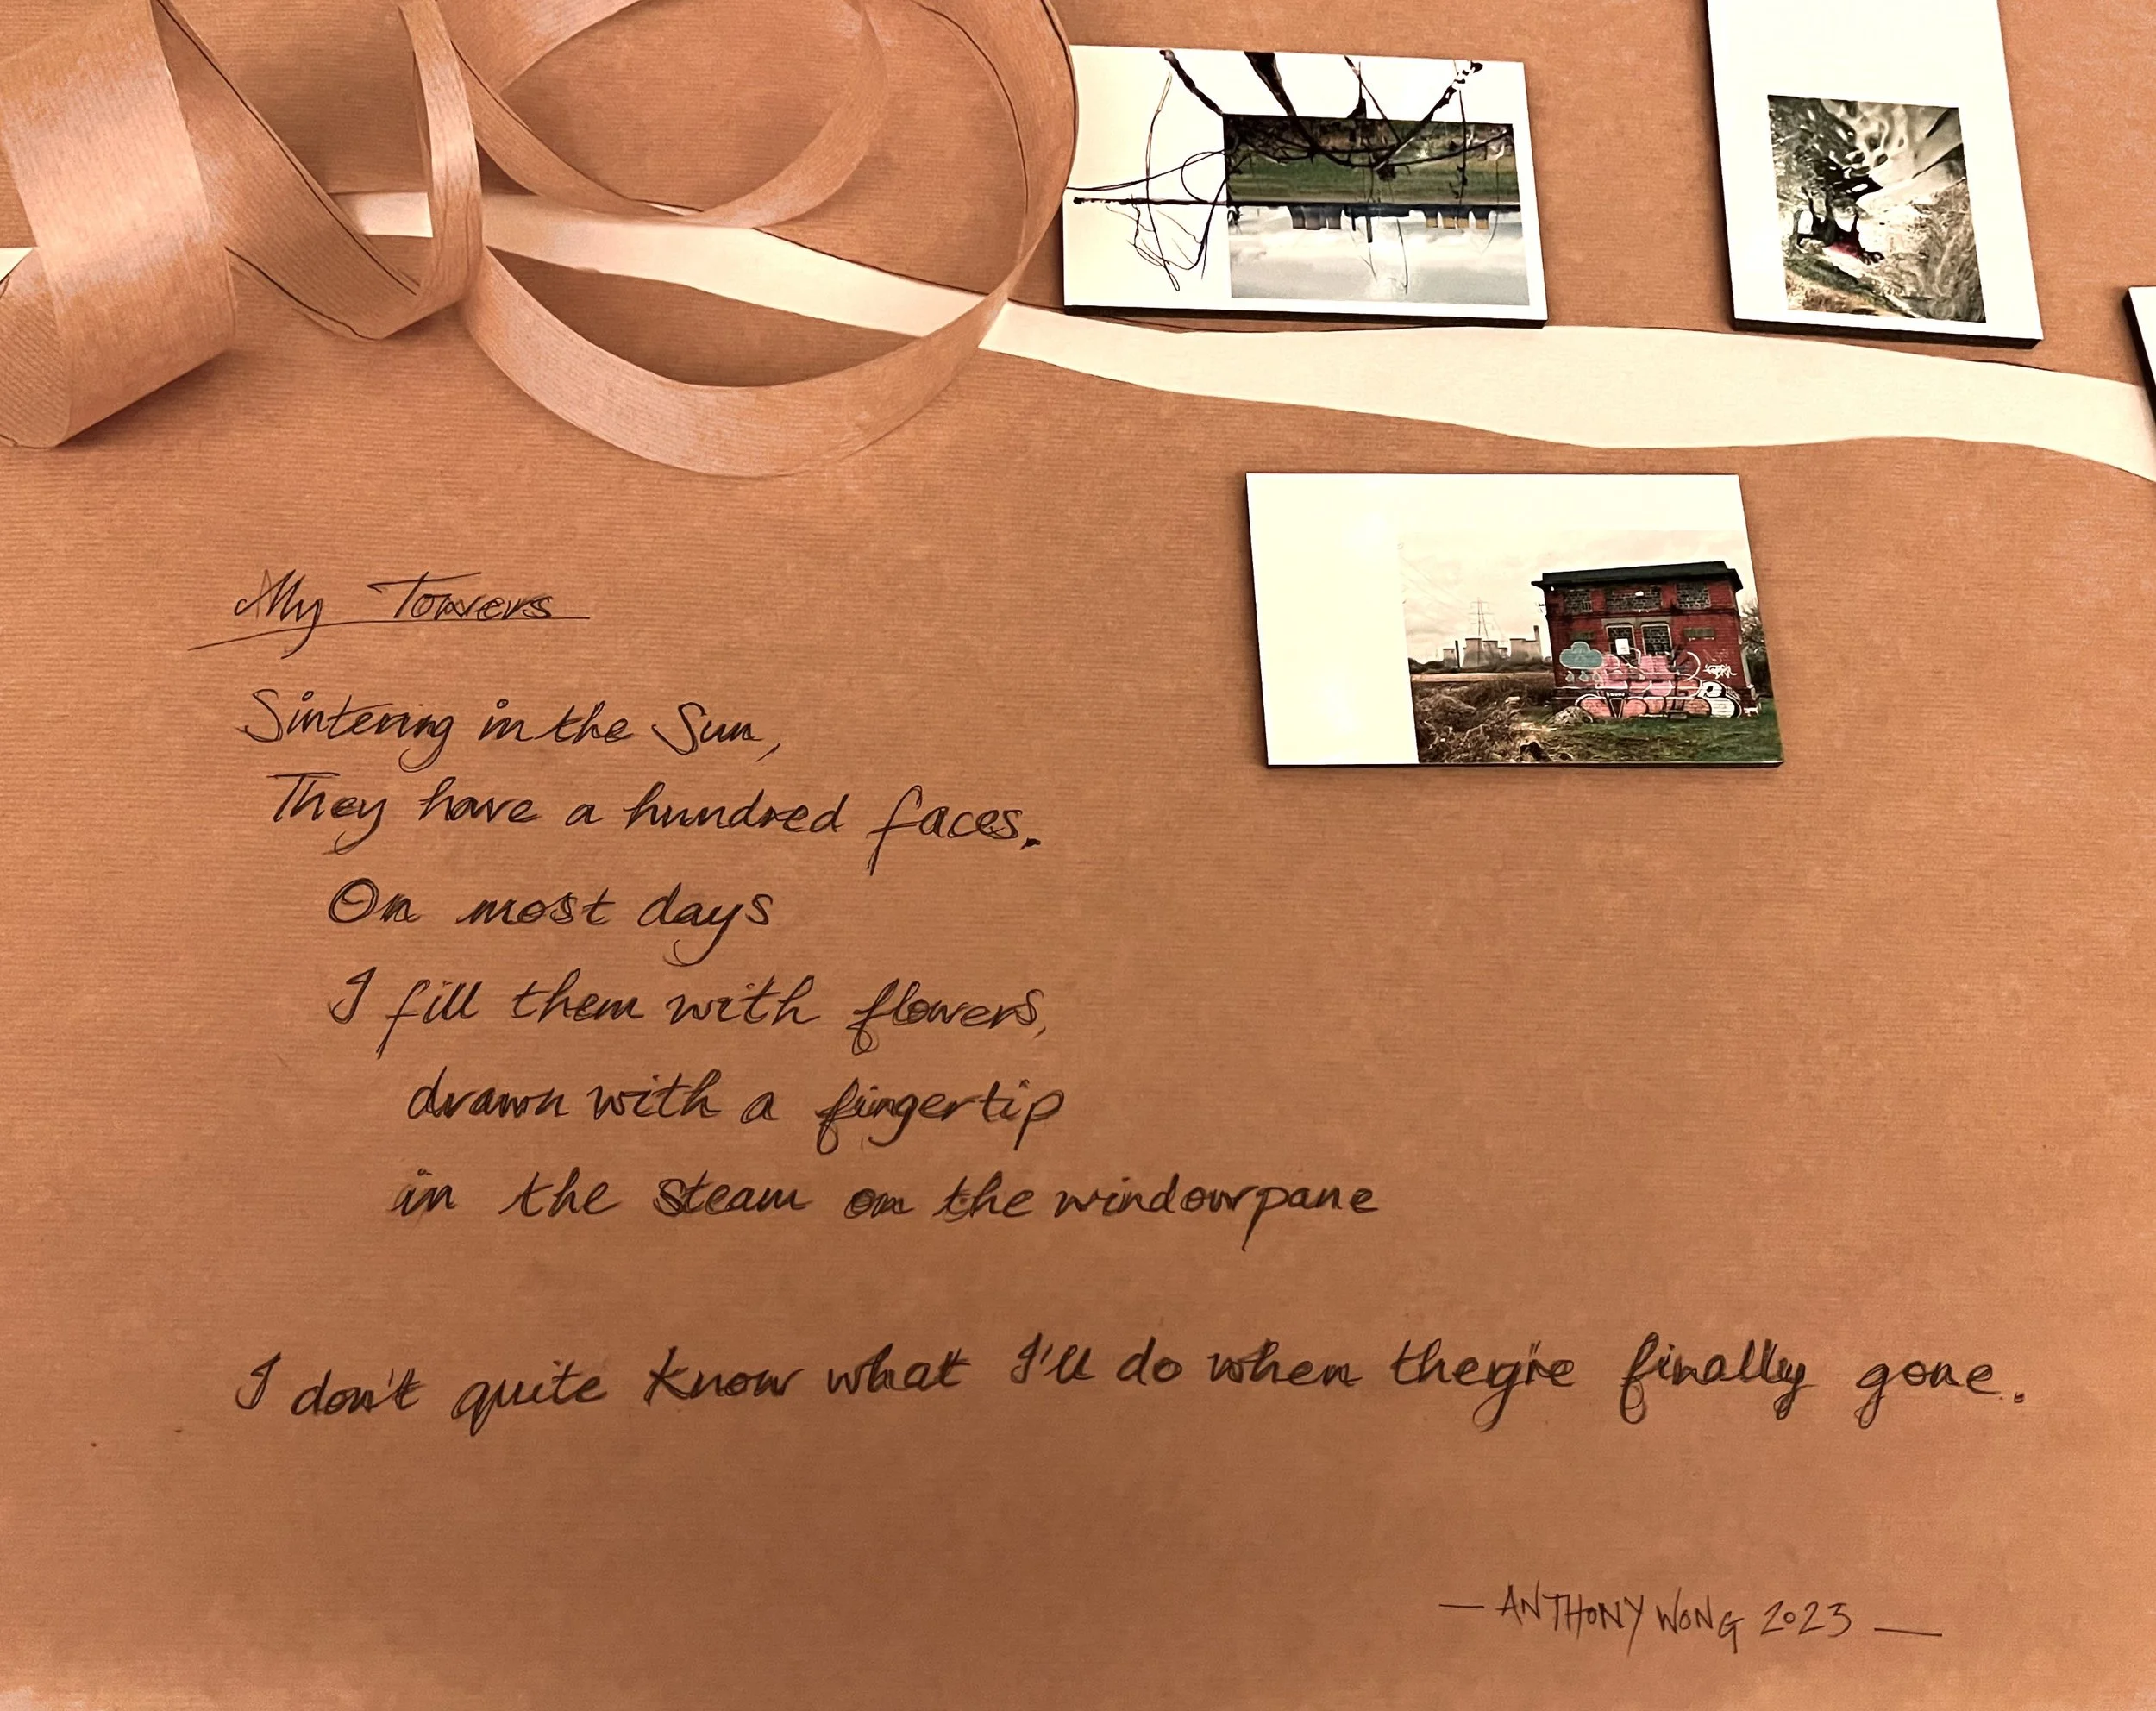 My Towers
Sintering in the Sun,
They have a hundred faces.
On most days
I fill them with flowers,
drawn with a fingertip
in the steam on the windowpane
I don't quite know what I'll do when they're finally gone.
— ANTHONY WONG 2023 —